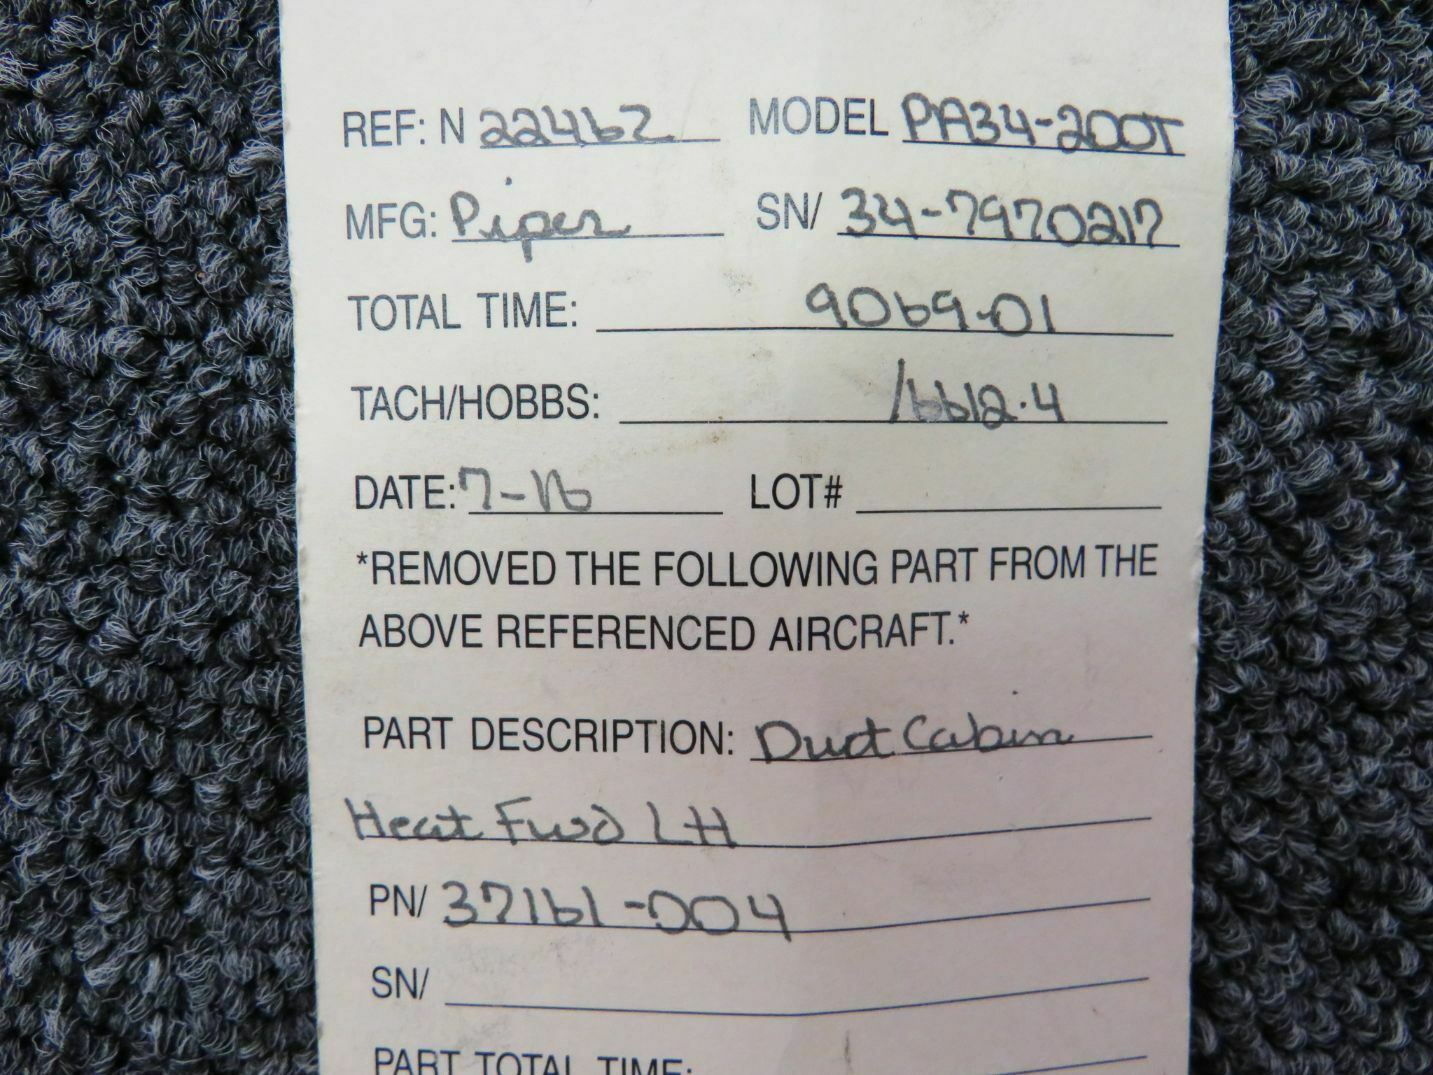 REF: N 22462 MODEL PA34-200T
MFG: Piper SN/ 34-7970217
TOTAL TIME: 9069.01
TACH/HOBBS: 1662.4
DATE: 7-16 LOT#
*REMOVED THE FOLLOWING PART FROM THE
ABOVE REFERENCED AIRCRAFT.*
PART DESCRIPTION: Duct Cabin
Heat Fwd LH
PN/ 37161-004
SN/
PART TOTAL TIME: